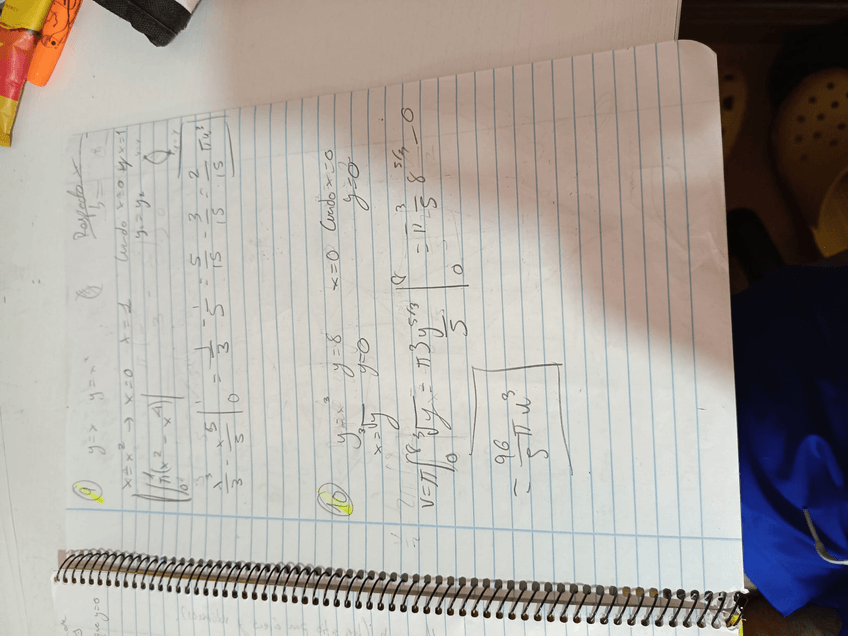 9 y=x y=x² Respecto x
x=x² → x=0 x=1 Cuando x=0 y x=1
∫₀¹ π(x² - x⁴)
x³/3 - x⁵/5 |₀¹ = 1/3 - 1/5 = 5/15 - 3/15 = 2/15 πu³
10 y=x³ y=8 x=0 Cuando x=0
x=∛y y=0 y=0
V=π∫₀⁸ ∛y = π 3y^5/3 / 5 |₀⁸ = π 3/5 8^5/3 - 0
= 96/5 π u³